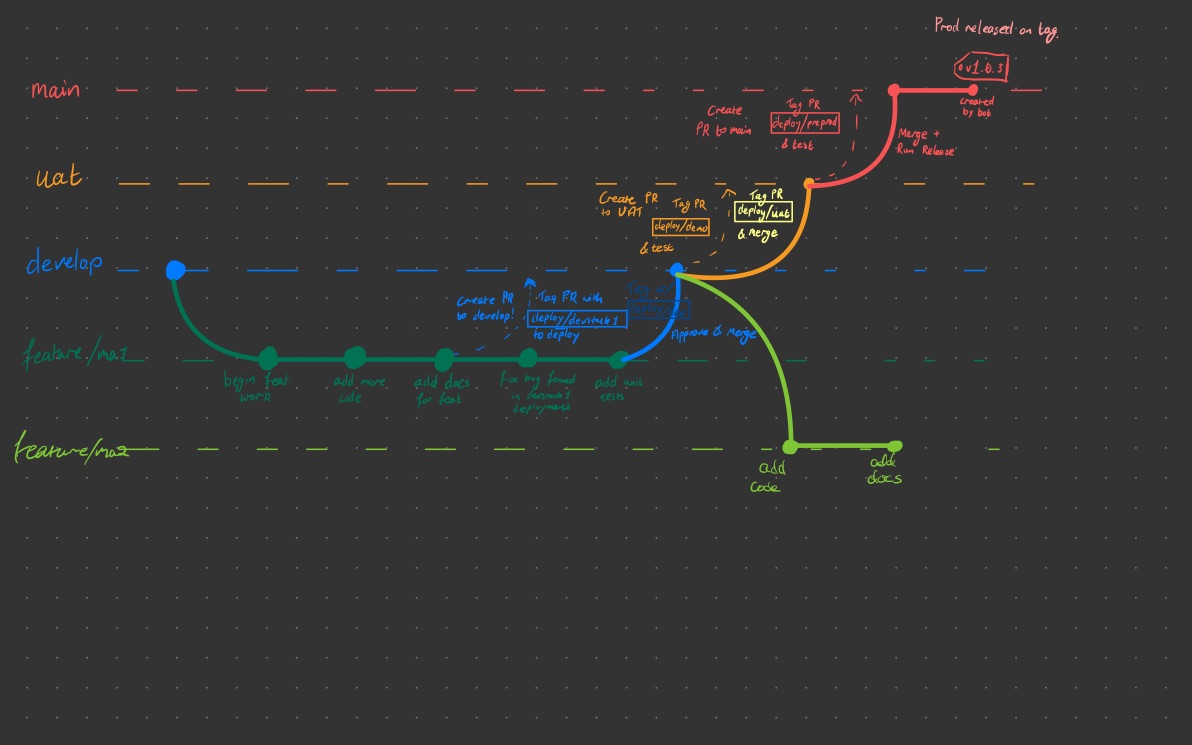 Prod released on tag.
main
v1.0.3
created
by bot
Create
PR to main
Tag PR
deploy/preprod
& test
Merge +
Run Release
uat
Create PR
to UAT
Tag PR
deploy/demo
& test
Tag PR
deploy/uat
& Merge
develop
Create PR
to develop!
Tag PR with
deploy/devstack1
to deploy
Approve & Merge
feature/ma1
begin feat
work
add more
code
add docs
for feat
fix bug found
in devstack1
deployment
add unit
tests
feature/ma2
add
code
add
docs